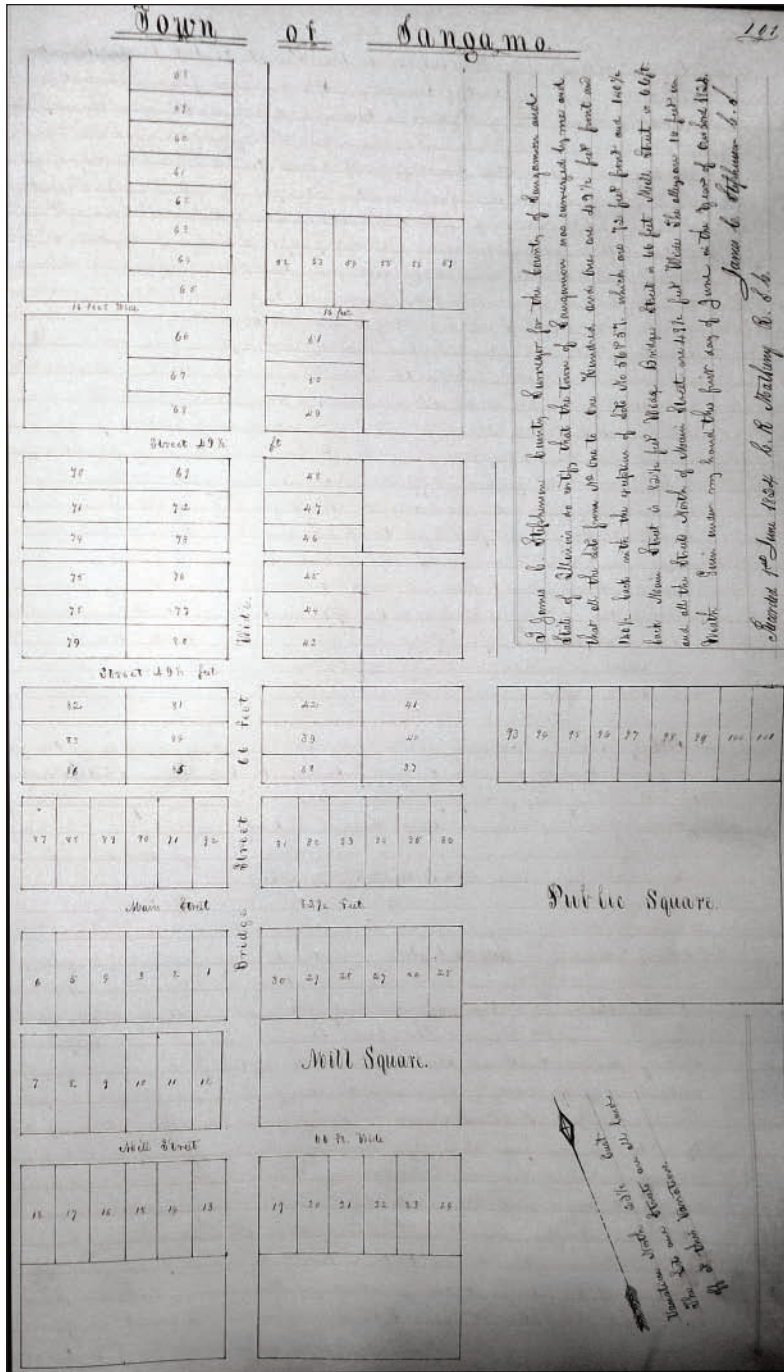 Town of Sangamo.
101
58
59
60
61
62
63
64
65
52 53 54 55 56 57
16 feet Wide
16 feet
66
67
68
51
50
49
Street 49½ ft
70 69
71 72
74 73
75 76
78 77
79 80
48
47
46
45
44
43
Street 49½ feet
82 81
83 84
86 85
42 41
39 40
38 37
93 94 95 96 97 98 99 100 101
87 88 89 90 91 92
31 32 33 34 35 36
Bridge Street 66 Feet Wide.
Main Street 82½ Feet
Public Square.
6 5 4 3 2 1
30 29 28 27 26 25
7 8 9 10 11 12
Mill Square.
Mill Street 66 Ft. Wide
18 17 16 15 14 13
19 20 21 22 23 24
I James C. Stephenson County Surveyor for the County of Sangamon and
State of Illinois do certify that the town of Sangamon was surveyed by me and
that all the Lots from No One to One Hundred and One are 49½ feet front and
148½ back with the exception of Lots No which are 72 feet front and 148½
back. Main Street is 82½ feet Wide Bridge Street is 66 feet Mill Street is 66 ft.
and all the Streets North of Main Street are 49½ feet Wide The alleys are 16 feet in
Width Given under my hand this first day of June in the Year of our Lord 1824.
James C. Stephenson C. S.
Recorded 1st June 1824 C. R. Matheny R. S. C.
Variation North East
The Lots and Streets are all laid